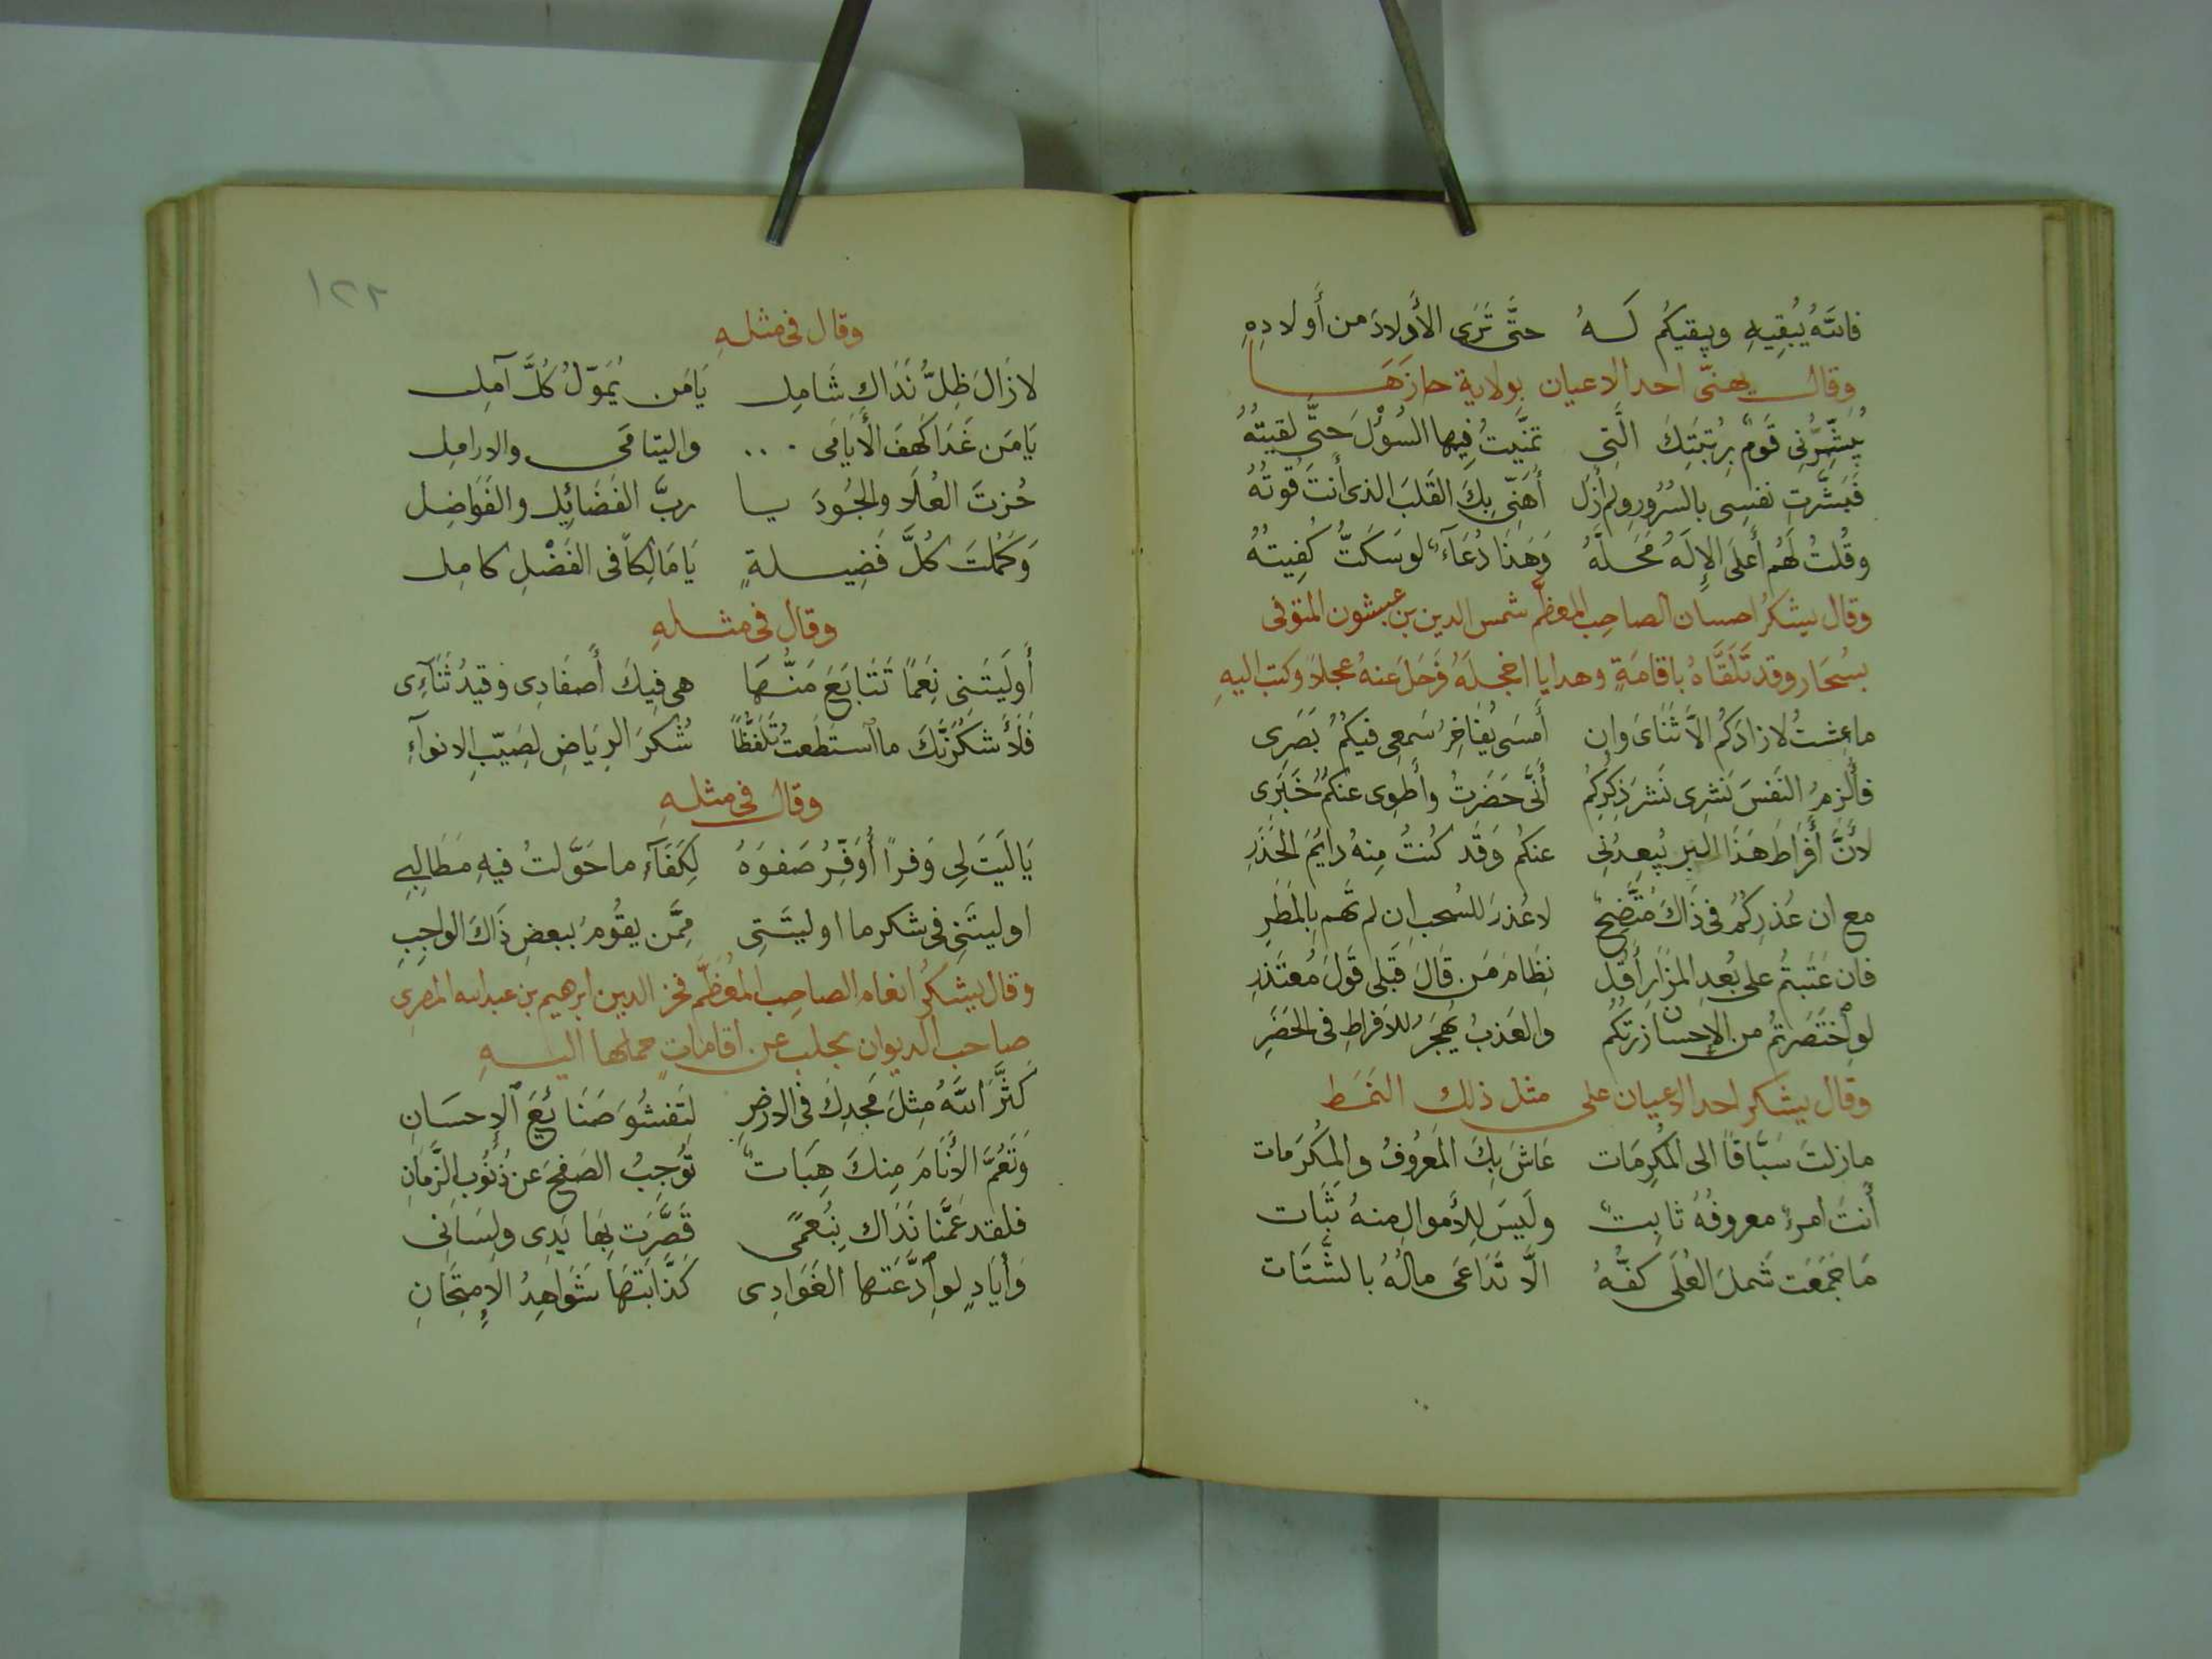 فاللهُ يُبقِيهِ ويبقيكُم لَـــهُ حتَّى تَرَى الأَولادَ من أَولادِهِ
وقال يهنّى احد الاعيان بولاية حازَهَـــا
يُبَشِّرُنِى قَومٌ بِرُتبَتِكَ الَّتِى تمنَّيتُ فِيها السُؤْلَ حَتَّى لقيتُهُ
فَبَشَّرتُ نفسِى بالسُرُورِ ولم أَزَل أُهَنِّى بِكَ القَلبَ الذى أَنتَ قُوتُهُ
وقُلتُ لَهُم أَعلَى الإِلَهُ مَحَلَّهُ وَهَذَا دُعَآءٌ لو سَكَتُّ كُفِيتُهُ
وقال يشكرُ احسان الصاحِب المعظّم شمس الدين بن عبشون المتوفى
بسُنجار وقد تَلَقَّاهُ باقامَةٍ وهدايا اخجلَهُ فَرَحَلَ عنهُ عجلاً وكتب اليهِ
ما عِشتُ لا زادَكُم الاَّ ثَنَاىَ وان أَمسَى يُفَاخِرُ سَمعِى فيكُمُ بَصَرِى
فأُلزِمُ النَفسَ نَشرِى نَشرَ ذِكرِكُم أَنَّى حَضَرتُ وأَطوِى عنكُمُ خَبَرِى
لأَنَّ أَفرَاطَ هَذَا البِر يُبعِدُنِى عنكُم وَقَد كُنتُ مِنهُ دايُمَ الحَذَرِ
مع ان عُذرِكُمُ فى ذَاكَ مُتَّضِحٌ لا عُذرَ للسُحبِ ان لم تَهمِ بالمَطَرِ
فان عَتَبتُم على بُعدِ المَزَارِ أَقُل نِظَامَ مَن قَالَ قَبلِى قَولَ مُعتَذِرِ
لوِ اختَصَرتُم من الإِحسانِ زرتكُم والعَذبُ يُهجَرُ للاَفراطِ فى الخَصَرِ
وقال يشكر احد الاعيان على مثل ذلك النَمَط
ما زلتَ سَبَّاقًا الى المَكرِمَات عَاشَ بِكَ المَعرُوفُ والمَكرَمات
أَنتَ امرءٌ معروفُهُ ثابِتٌ ولَيسَ لِلأَموالِ مِنهُ ثَبَات
مَا جَمَعَت شَملَ العُلَى كَفُّهُ الاَّ تَدَاعَى مالُهُ بالشَّتَات
١٢٢
وقال فى مثلهِ
لا زَالَ ظِلُّ نَدَاكِ شَامِل يَا مَن يُمَوّلُ كُلَّ آمِل
يَا مَن غَدَا كَهفَ الأَيَامَى واليتامَى والارامِل
حُزتَ العُلَا والجُودَ يا ربَّ الفَضَائِلِ والفَوَاضِل
وَكَمُلتَ كلَّ فَضِيلةٍ يَا مَالِكًا فى الفَضْلِ كامِل
وقال فى مثلهِ
أَولَيتَنِى نِعَمًا تَتَابَعَ مَنُّهَا هى فِيكَ أَصفَادِى وقيدُ ثَنَآءِى
فَلَأَشكُرَنَّكَ ما استطَعتُ تَلَفُّظًا شُكرَ الرِيَاضِ لصَيّبِ الانوآءِ
وقال فى مثلهِ
يَا لَيتَ لِى وَفرًا أُوَفِّرُ صَفوَهُ لِكَفَآءِ ما حَوَّلتُ فيهِ مَطَالِبِى
او ليتَنِى فى شكر ما اوليتَنِى مِمَّن يقُومُ ببعضِ ذَاكَ الواجِبِ
وقال يشكرُ انعام الصاحِب المعُظَّم فخر الدين ابرهيم بن عبدالله المصرى
صاحب الديوان بحلب عن اقاماتٍ حملها اليهِ
كَثَّرَ اللهُ مِثلَ مَجدِكَ فى الارضِ لِتَفشُوَ صَنَائعُ الاِحسَانِ
وَتَعُمَّ الأَنَامَ مِنكَ هِبَاتٌ تُوجِبُ الصَفحَ عن ذُنُوبِ الزَّمَانِ
فلقد عَمَّنا نَدَاك بِنُعمَى قَصَّرَت بِهَا يَدِى ولِسَانِى
وَأيَادٍ لوِ ادَّعَتها الغَوَادِى كَذَّبَتهَا شَوَاهِدُ الإِمتِحَانِ